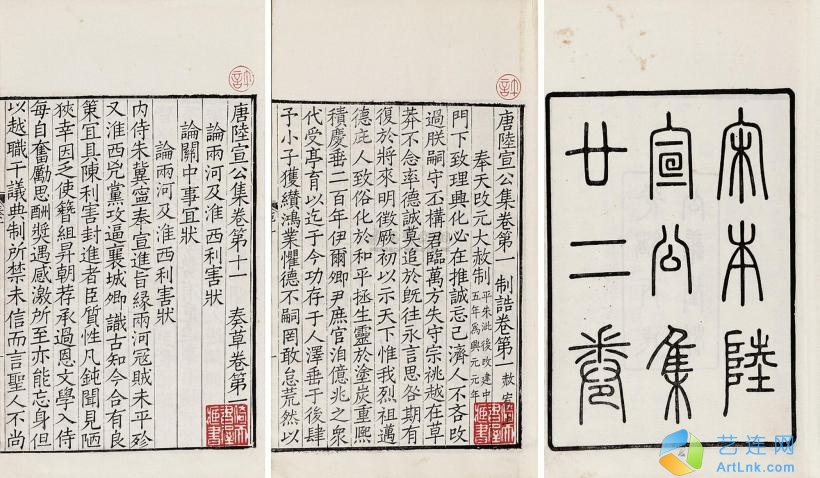 宋本陸
宣公集
廿二卷
唐陸宣公集卷第一 制誥卷第一 赦宥
奉天改元大赦制 平朱泚後改建中五年為興元元年
門下致理興化必在推誠忘己濟人不吝攺
過朕嗣守丕構君臨萬方失守宗祧越在草
莽不念率德誠莫追於既往永言思咎期有
復於將來明徵厥初以示天下惟我烈祖邁
德庇人致俗化於和平拯生靈於塗炭重熙
積慶垂二百年伊爾卿尹庶官洎億兆之衆
代受亭育以迄于今功存于人澤垂于後肆
子小子獲纘鴻業懼德不嗣罔敢怠荒然以
唐陸宣公集卷第十一 奏草卷第一
論兩河及淮西利害狀
論關中事宜狀
論兩河及淮西利害狀
內侍朱冀寧奉宣進旨緣兩河寇賊未平殄
又淮西兇黨攻逼襄城卿識古知今合有良
策宜具陳利害封進者臣質性凡鈍聞見陋
狹幸因乏使簪組昇朝荐承過恩文學入侍
每自奮勵思酬奬遇感激所至亦能忘身但
以越職干議典制所禁未信而言聖人不尚
艺连网
ArtLnk.com